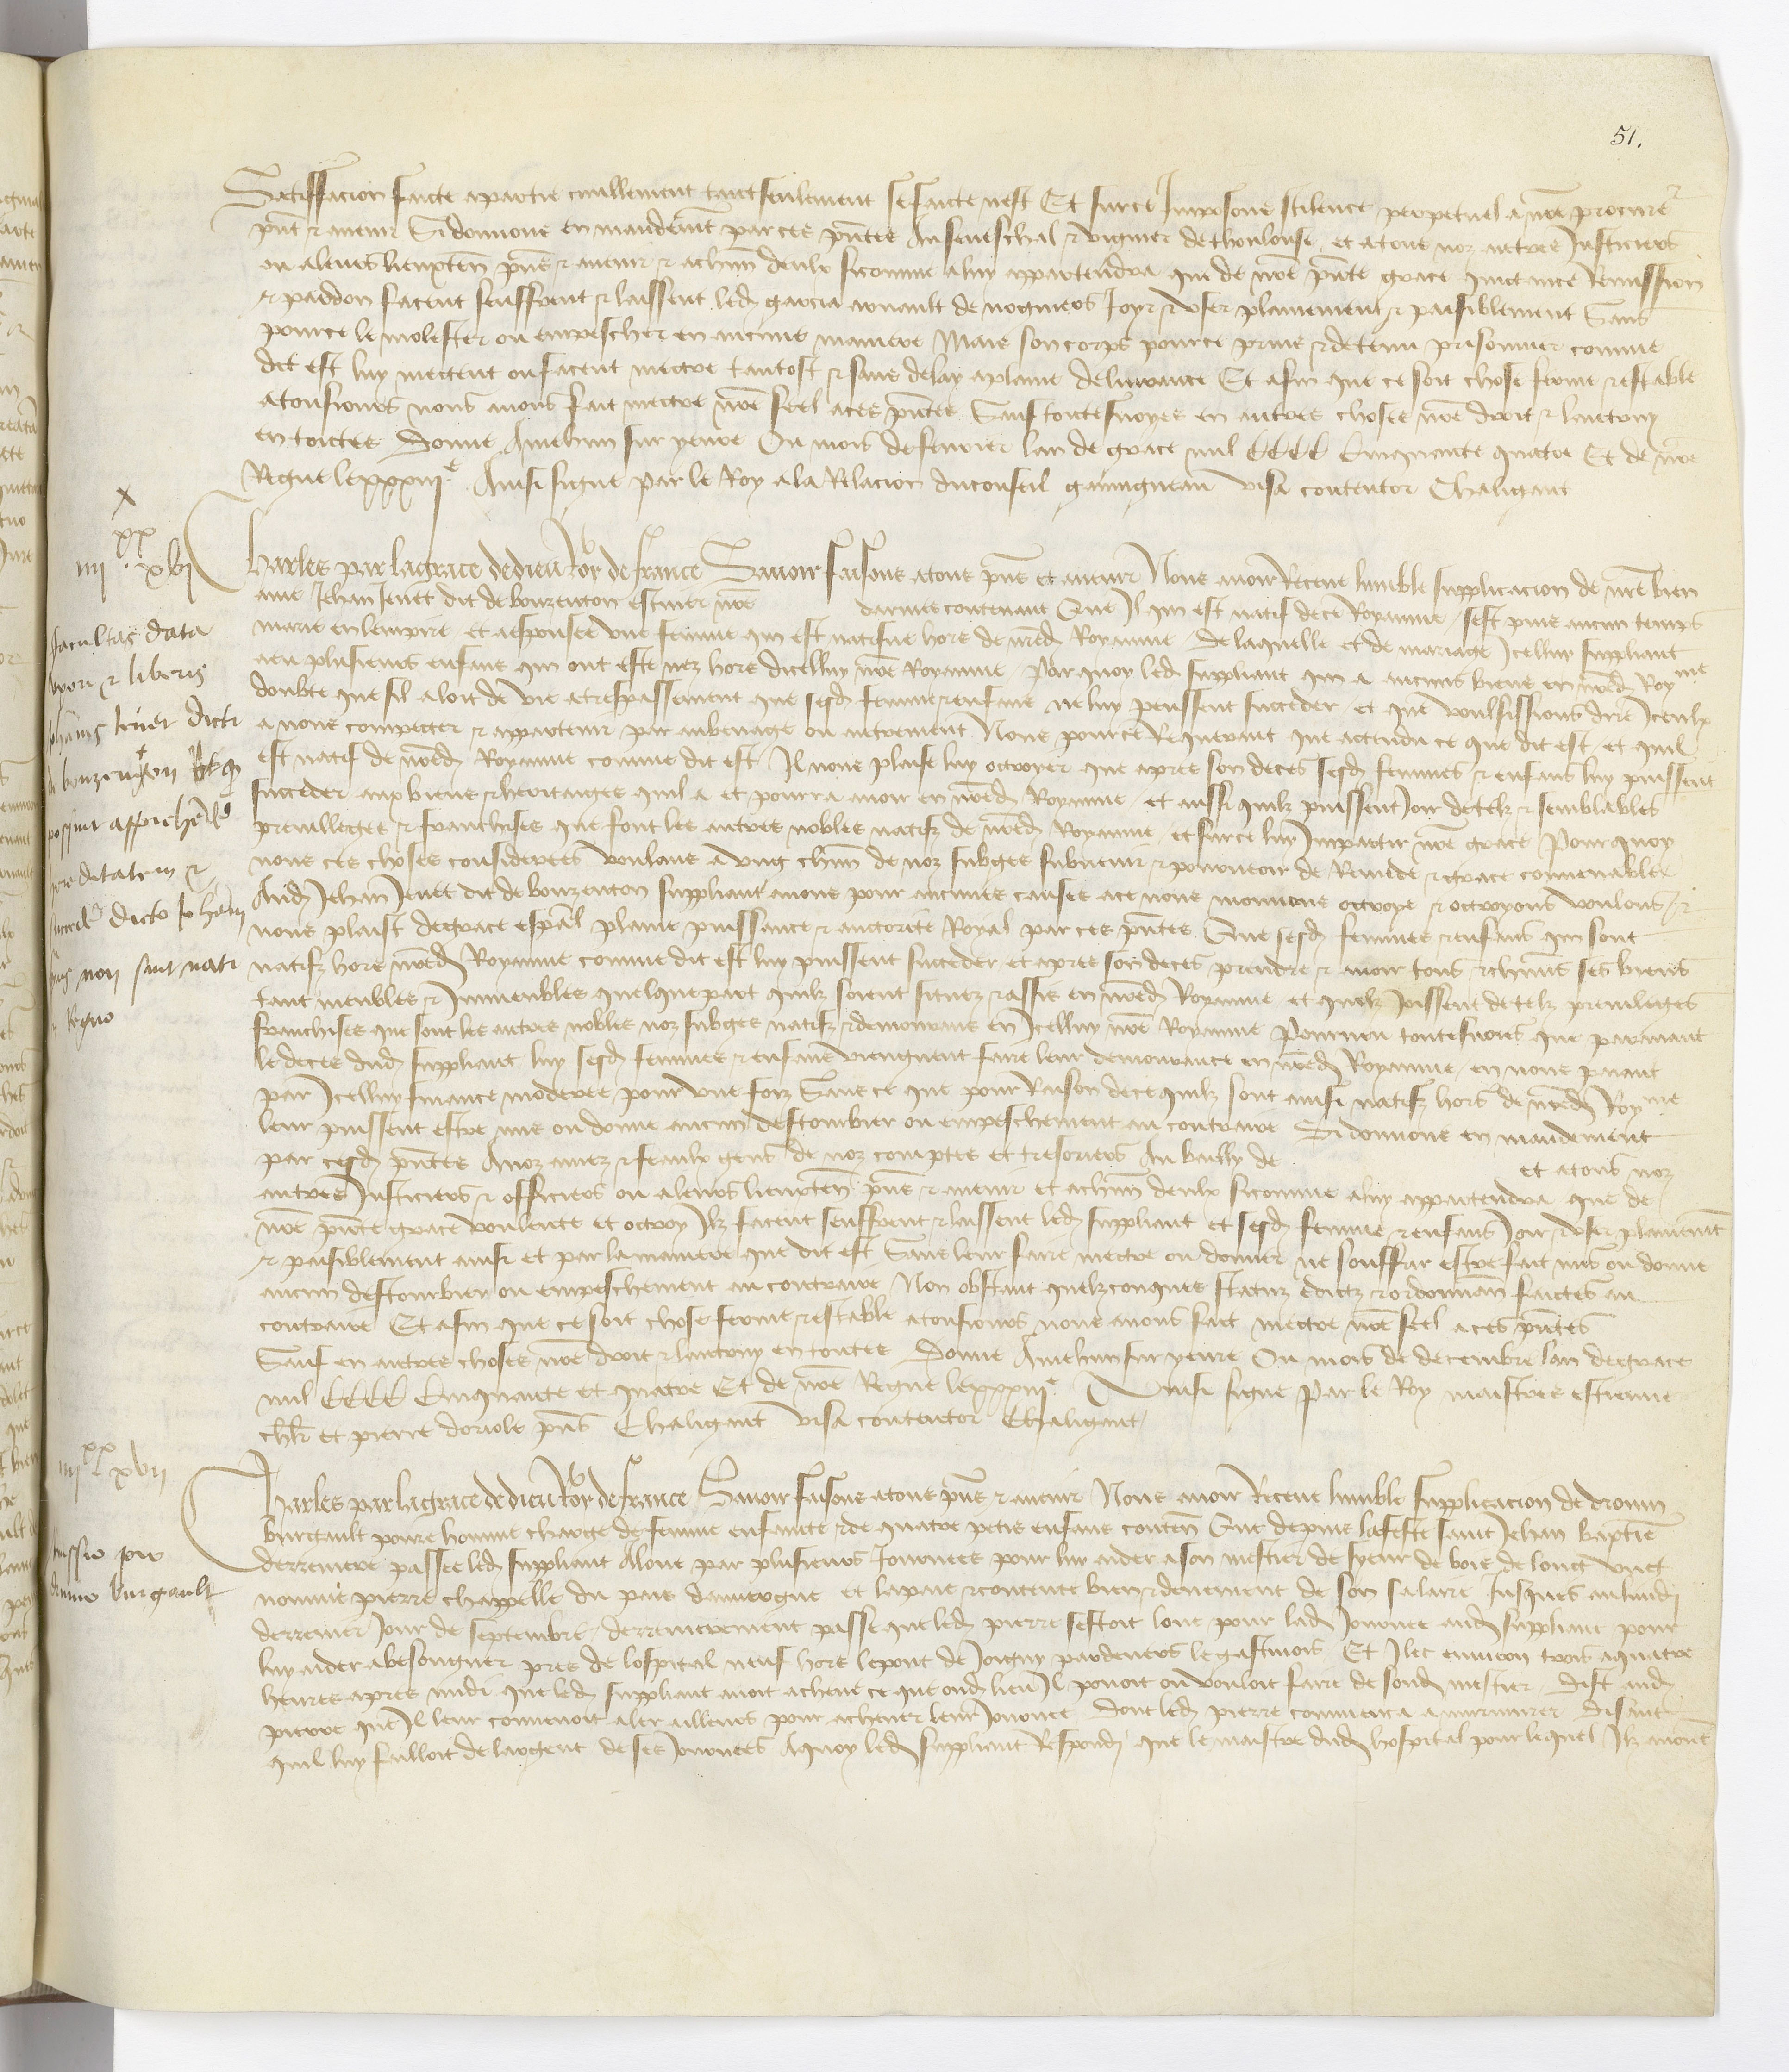 51.
Satisfacion faicte a partie civillement tant seulement se faicte nest Et surce Imposons silence perpetuel a nre procure^r
pnt & avenir Si donnons en mandemt par ces pntes Au seneschal & viguier de tholouse et a tous noz autres Justiciers
ou a leurs lieuxten pns & avenir & a chun deulx sicomme a luy appartendra que de nre pnte grace quictance Remission
& pardon facent seuffrent & laissent led garcia arnault de nogueros Joyr & user plainement & paisiblement Sans
pource le molester ou empescher en aucune maniere Mais son corps pource prins & detenu prisonnier comme
dit est luy mectent ou facent mectre tantost & sans delay a plaine delivrance Et afin que ce soit chose ferme & estable
a tousiours nous avons fait mectre nre seel a ces pntes Sauf toutesvoyes en autres choses nre droit & lautruy
en toutes Donne A mehun sur yevre Ou mois de fevrier lan de grace mil CCCC Cinquante quatre Et de nre
Regne le xxxiii^e Ainsi signe Par le Roy a la Relacion du conseil gauuigneau visa contentor Chaligant
x
iiii^xx xvi
Charles par la grace de dieu Roy de france Savoir faisons a tous pns et avenir Nous avoir Receue humble supplicacion de nre bien
ame Jehan Jenet dit de bouzenton escuier nre darmes contenant Que Il qui est natif de ce Royaume sest puis aucun temps
marie en lempire et a espousee une femme qui est natifve hors de nred Royaume De laquelle et de mariage Icelluy suppliant
a eu plusieurs enfans qui ont este nez hors dicelluy nre Royaume Par quoy led suppliant qui a aucuns biens en nred Roy^me
doubte que sil aloit de vie a trespassement que sesd femme & enfans ne luy peussent succeder et que voulsissions dire Iceulx
a nous competter & appartenir par aubenage ou autrement Nous pource Requerant que actendu ce que dit est et quil
est natif de nred Royaume comme dit est Il nous plaise luy octroyer que apres son deces sesd femmes & enfans luy puissent
succeder aux biens & heritaiges quil a et pourra avoir en nred Royaume et aussi quilz puissent Joir de telz & semblables
previlleges & franchises que font les autres nobles natifz de nred Royaume et surce luy Impartir nre grace Pourquoy
nous ces choses considerees voulans a ung chun de noz subges subvenir & pourveoir de Remede & grace convenable
Aud Jehan Jenet dit de bouzenton suppliant avons pour aucunes causes a ce nous mouvans octroye & octroyons voulons &
nous plaist de grace espal plaine puissance & auctorite Royal par ces pntes Que sesd femmes & enfans qui sont
natifz hors nred Royaume comme dit est luy puissent succeder et apres son deces prendre & avoir tous & chuns ses biens
tant meubles & Immeubles quelquepart quilz soient situez & assis en nred Royaume et quilz Joissent de telz previleges
franchises que sont les autres nobles noz subges natifz & demourans en Icelluy nre Royaume Pourveu toutesvoies que paravant
le deces dud suppliant luy sesd femmes & enfans viengnent faire leur demourance en nred Royaume en nous paiant
par Icelluy finance moderee pour une foiz Sans ce que pour Raison de ce quilz sont ainsi natifz hors de nred Roy^me
leur puissent estre mis ou donne aucun destourbier ou empeschement au contraire Si donnons en mandement
par cesd pntes A noz amez & feaulx gens de noz comptes et tresoriers Au bailly de et a tous noz
autres Justiciers & officiers ou a leurs lieuxten pns & avenir et a chun deulx sicomme a luy appartendra que de
nre pnte grace voulente et octroy Ilz facent seuffrent & laissent led suppliant et sesd femme & enfans Joir & user plainemt
& paisiblement ainsi et par la maniere que dit est Sans leur faire mectre ou donner ne souffrir estre fait mis ou donne
aucun destourbier ou empeschement au contraire Non obstant quelzconques statuz edictz & ordonnan faictes au
contraire Et afin que ce soit chose ferme & estable a tousiours nous avons fait mectre nre seel a ces pntes
Sauf en autres choses nre droit & lautruy en toutes Donne A mehun sur yevre Ou mois de decembre lan de grace
mil CCCC Cinquante et quatre Et de nre Regne le xxxiii^e Ainsi signe Par le Roy maistres estienne
chlr et pierre doriole pns Chaligant visa contentor Chaligant
facultas data
uxori & liberis
Johannis Jenet dicti
de bouzenton
possint apprehend
hereditatem &
succed dicto Johani
non sint nati
Regno
iiii^xx xvii
Charles par la grace de dieu Roy de france Savoir faisons a tous pns & avenir Nous avoir Receue humble supplicacion de drouin
burgault povre homme charge de femme enfainte & de quatre petis enfans conten Que depuis la feste saint Jehan baptie
derreniere passee led suppliant Aloue par plusieurs Journees pour luy aider a son mestier de syeur de bois de long ung
nomme pierre chappelle du pais dauvergne et la paie & contente bien & deuement de son salaire Jusques au lundi
derrenier Jour de septembre derrenierement passe que led pierre sestoit loue pour lad Journee aud suppliant pour
luy aider a besongner pres de lospital neuf hors le pont de Joigny pardevers le gastinois Et Ilec environ trois a quatre
heures apres midi que led suppliant avoit acheve ce que oud lieu Il povoit ou vouloit faire de sond mestier Dist aud
pierre que Il leur convenoit aler ailleurs pour achever leur Journee Dont led pierre commenca a murmurer Disant
quil luy falloit de largent de ses Journees A quoy led suppliant Respondi que le maistre dud hospital pour lequel Ilz avoit
Remissio pro
drouino burgault